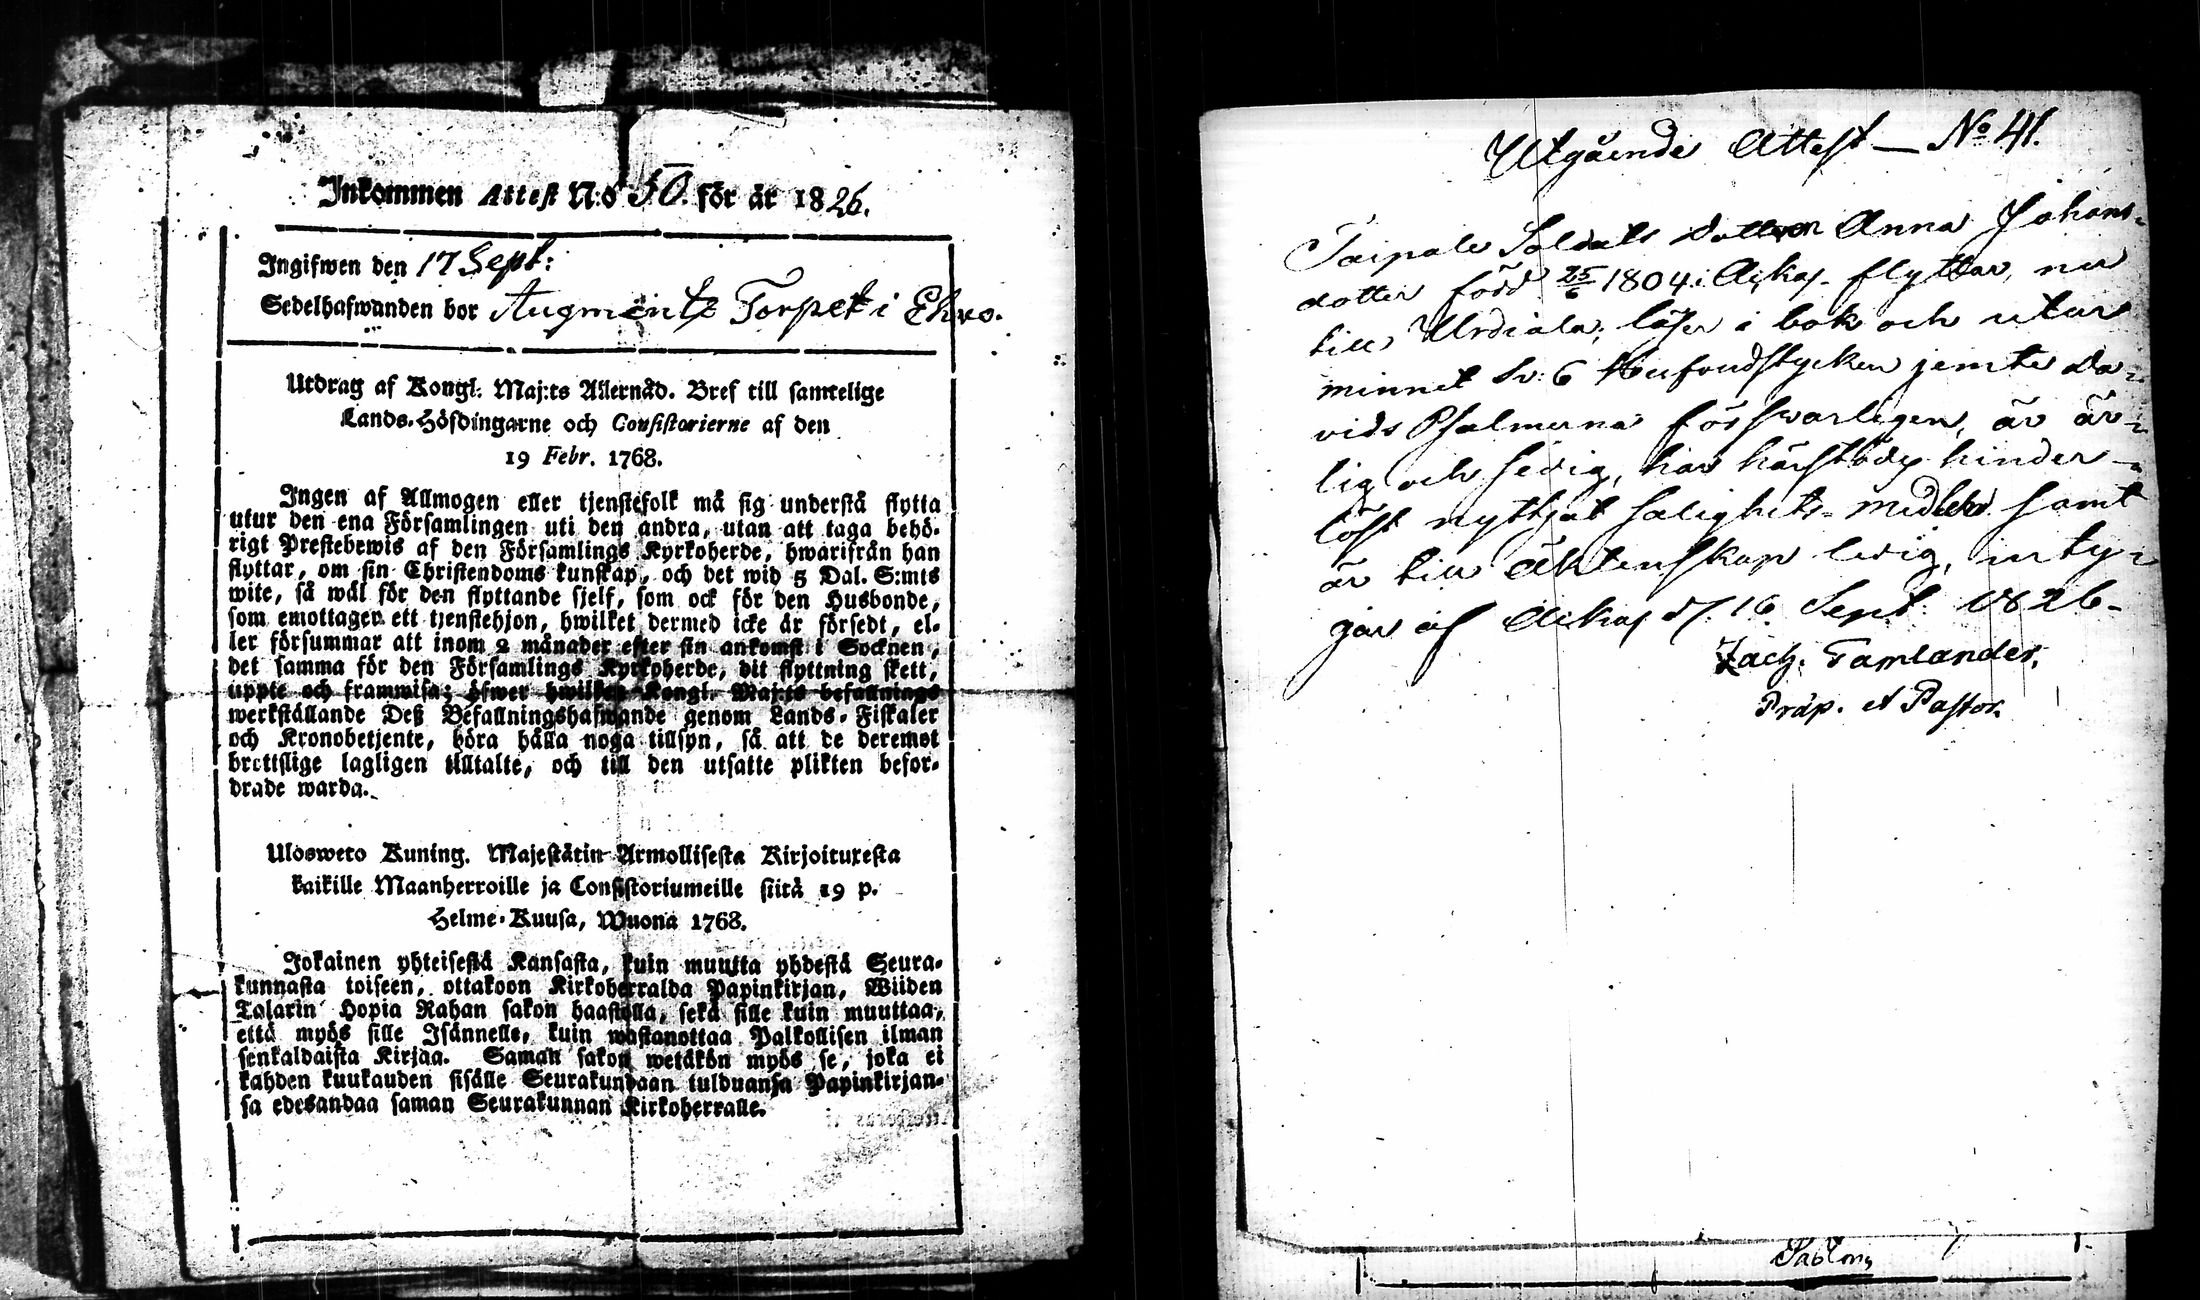 Inkommen Attest N:o 50. för år 1826.
Ingifwen den 17 Sept:
Sedelhafwanden bor Augments Torpet i Ehro.
Utdrag af Kongl. Maj:ts Allernåd. Bref till samtelige
Lands-Höfdingarne och Consistorierne af den
19 Febr. 1768.
Ingen af Allmogen eller tjenstefolk må sig understå flytta
utur den ena Församlingen uti den andra, utan att taga behö-
rigt Prestebewis af den Församlings Kyrkoherde, hwarifrån han
flyttar, om sin Christendoms kunskap, och det wid 5 Dal. S:mts
wite, så wäl för den flyttande sjelf, som ock för den Husbonde,
som emottager ett tjenstehjon, hwilket dermed icke är försedt, el-
ler försummar att inom 2 månader efter sin ankomst i Socknen,
det samma för den Församlings Kyrkoherde, dit flyttning skett,
uppte och framwisa; öfwer hwilken Kongl. Maj:ts befallnings
werkställande Deß Befallningshafwande genom Lands-Fiskaler
och Kronobetjente, böra hålla noga tillsyn, så att de deremot
brottslige lagligen tilltalte, och till den utsatte plikten befor-
drade warda.
Ulosweto Kuning. Majestätin Armollisesta Kirjoituxesta
kaikille Maanherroille ja Consistoriumeille siitä 19 p.
Helme-Kuusa, Wuona 1768.
Jokainen yhteisestä Kansasta, kuin muutta yhdestä Seura-
kunnasta toiseen, ottakoon Kirkoherralda Papinkirjan, Wiiden
Talarin Hopia Rahan sakon haastolla, sekä sille kuin muuttaa,
että myös sille Isännelle, kuin wastanottaa Palkollisen ilman
senkaldaista Kirjaa. Saman sakon wetäkön myös se, joka ei
kahden kuukauden sisälle Seurakundaan tulduansa Papinkirjan-
sa edesandaa saman Seurakunnan Kirkoherralle.
Utgående Attest — No 41.
Taipale Soldats dotter Anna Johans-
dotter född 25/6 1804 i Ackas flyttar, nu
till Urdiala; läser i bok och utur
minnet Sv: 6 Hufvudstycken jemte Da-
vids Psalmerna försvarligen, är är-
lig och sedig, har härstädes hinder-
löst nyttjat salighets-medlen samt
är till Äktenskap ledig, inty-
gar af Ackas d. 16 Sept: 1826.
Zach. Tamlander.
Præp. et Pastor.